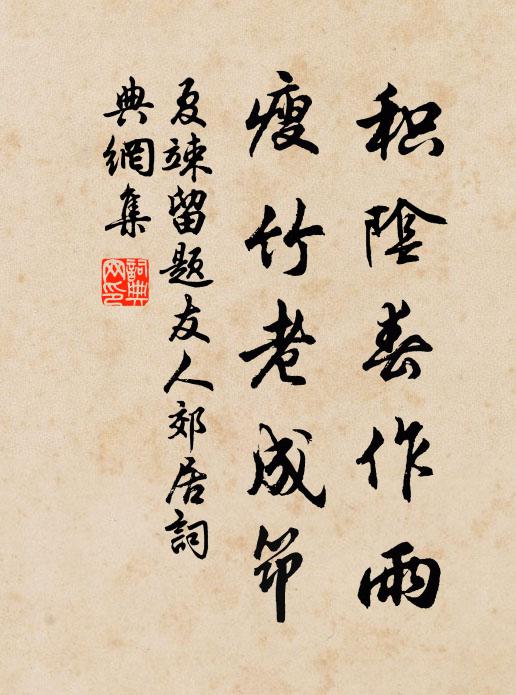 积陰春作雨
瘦竹老成節
夏竦留題友人郊居詞
典網集
詞典网印